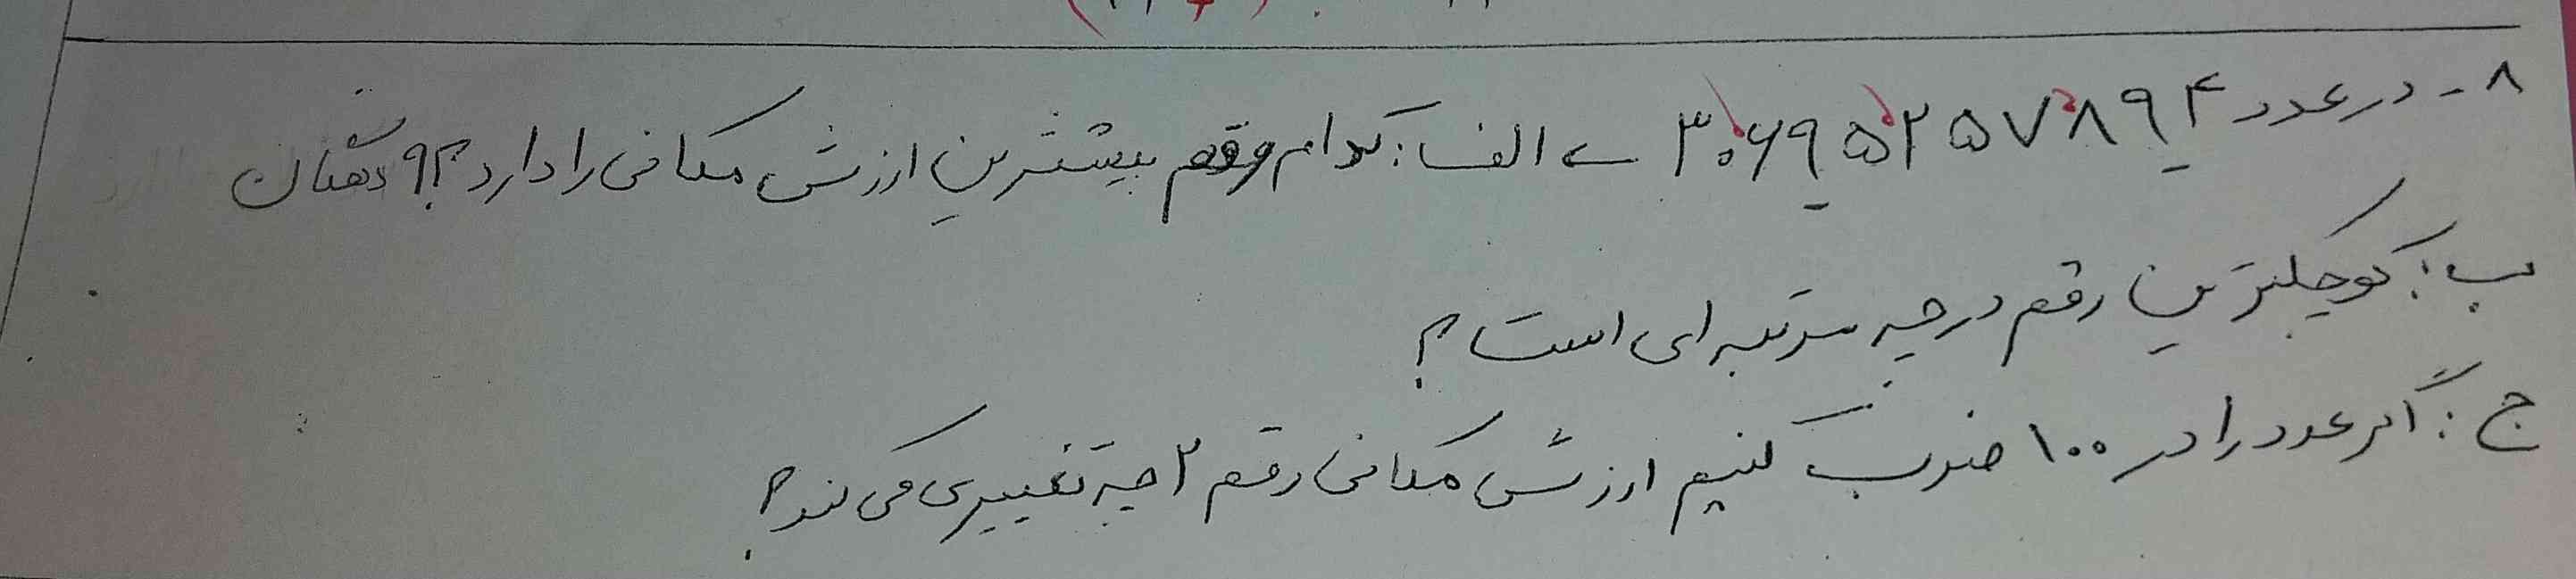 ۸ - در عدد ۳۰۶۹۵۲۵۷۸۹۴ ← الف: کدام رقم بیشترین ارزش مکانی را دارد؟ ۹ دهگان
ب: کوچکترین رقم در چه مرتبه ای است؟
ج: اگر عدد را در ۱۰۰ ضرب کنیم ارزش مکانی رقم ۲ چه تغییری می کند؟